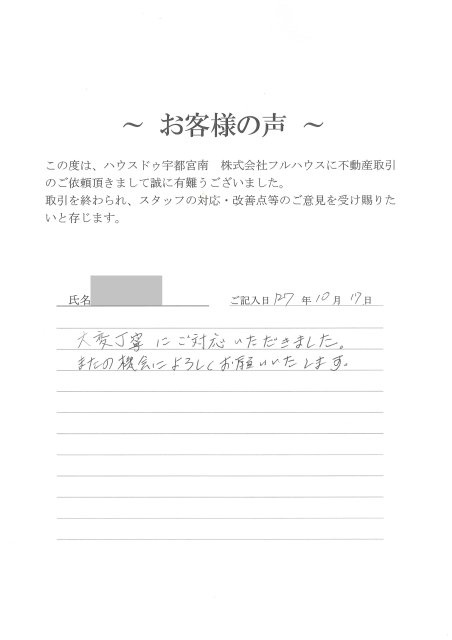 ～ お客様の声 ～
この度は、ハウスドゥ宇都宮南　株式会社フルハウスに不動産取引
のご依頼頂きまして誠に有難うございました。
取引を終わられ、スタッフの対応・改善点等のご意見を受け賜りた
いと存じます。
氏名 ご記入日 '27 年 10 月 17 日
大変丁寧にご対応いただきました。
またの機会によろしくお願いいたします。